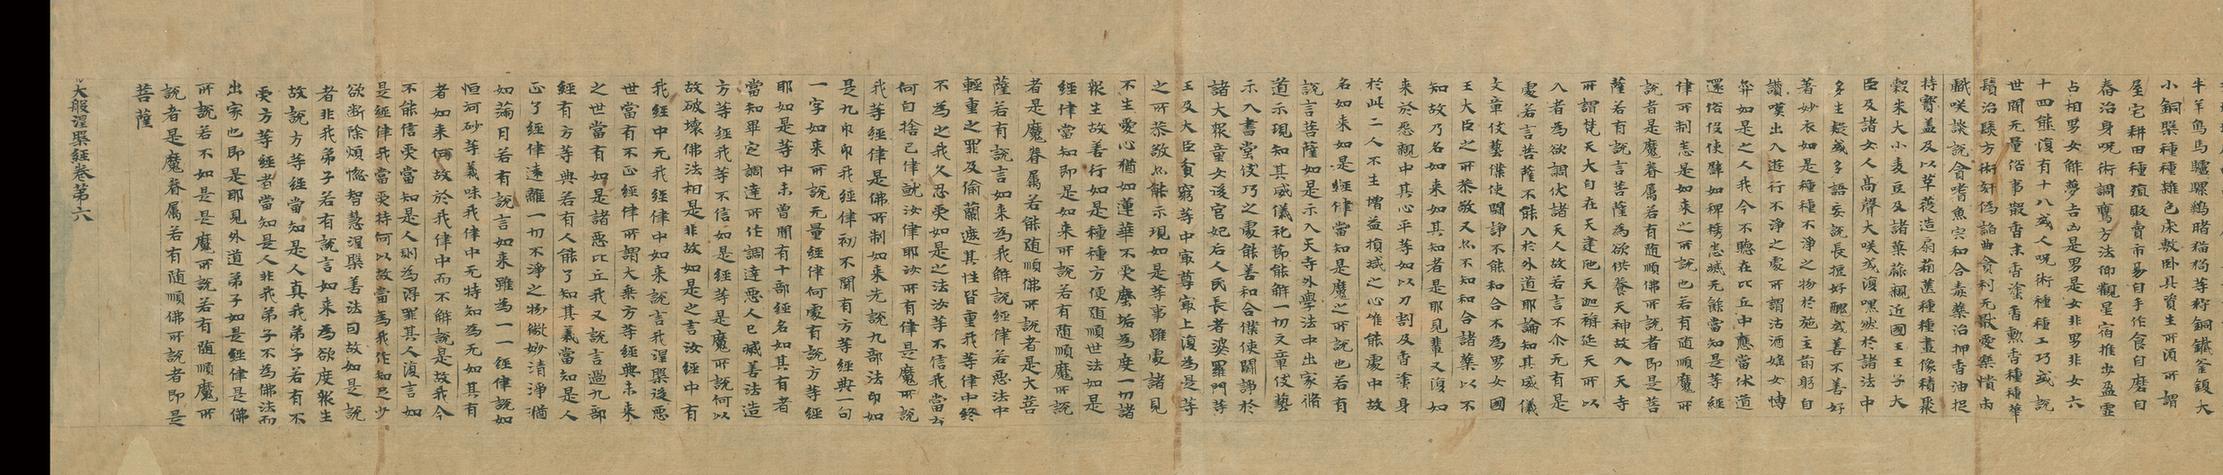 牛羊鳥馬驢騾鷄猪猫狗等杵銅鐵釜鍑大
小銅槃種種雜色床敷卧具資生所湏所謂
屋宅耕田種殖販賣市易自手作食自磨自
舂治身呪術調鷹方法仰觀星宿推步盈虛
占相男女解夢吉凶是男是女非男非女六
十四能復有十八或人呪術種種工巧或說
世間无量俗事散香末香塗香熏香種種華
鬘治髮方術奸偽諂曲貪利无猒愛樂憒閙
戲咲談說貪嗜魚宍和合毒藥治押香油捉
持寶盖及以革屣造扇箱篋種種畫像積聚
穀米大小麦豆及諸菓蓏親近國王王子大
臣及諸女人高聲大咲或復嘿然於諸法中
多生疑或多語妄說長短好醜或善不善好
著妙衣如是種種不淨之物於施主前躬自
讚嘆出入遊行不淨之處所謂沽酒婬女博
弈如是之人我今不聽在比丘中應當休道
還俗役使譬如稗莠悉滅无餘當知是等經
律所制悉是如來之所說也若有随順魔所
說者是魔眷属若有随順佛所說者即是菩
薩若有說言菩薩為欲供養天神故入天寺
所謂梵天大自在天違陁天迦旃延天所以
入者為欲調伏諸天人故若言不尒无有是
處若言菩薩不能入於外道耶論知其威儀
文章伎藝僕使鬪諍不能和合不為男女國
王大臣之所恭敬又亦不知和合諸藥以不
知故乃名如來如其知者是耶見輩又復如
來於怨親中其心平等如以刀割及香塗身
於此二人不生增益損减之心唯能處中故
名如來如是經律當知是魔之所說也若有
說言菩薩如是示入天寺外學法中出家脩
道示現知其威儀礼節能解一切文章伎藝
示入書堂伎巧之處能善和合僕使鬪諍於
諸大衆童女後宮妃后人民長者婆羅門等
王及大臣貧窮等中寂尊寂上復為是等
之所恭敬亦能示現如是等事雖處諸見
不生愛心猶如蓮華不受塵垢為度一切諸
衆生故善行如是種種方便随順世法如是
經律當知即是如來所說若有随順魔所說
者是魔眷属若能随順佛所說者是大菩
薩若有說言如來為我解說經律若惡法中
輕重之罪及偷蘭遮其性皆重我等律中終
不為之我久忍受如是之法汝等不信我當云
何自捨己律就汝律耶汝所有律是魔所說
我等經律是佛所制如來先說九部法印如
是九印印我經律初不聞有方等經典一句
一字如來所說无量經律何處有說方等經
耶如是等中未曾聞有十部經名如其有者
當知畢定調達所作調達惡人已滅善法造
方等經我等不信如是經等是魔所說何以
故破壞佛法相是非故如是之言汝經中有
我經中无我經律中如來說言我涅槃後惡
世當有不正經律所謂大乘方等經典未來
之世當有如是諸惡比丘我又說言過九部
經有方等典若有人能了知其義當知是人
正了經律遠離一切不淨之物微妙清淨猶
如滿月若有說言如來雖為一一經律說如
恒河砂等義味我律中无持知為无如其有
者如來何故於我律中而不解說是故我今
不能信受當知是人則為淂罪其人復言如
是經律我當受持何以故當為我作知足少
欲断除煩惱智慧涅槃善法因故如是說
者非我弟子若有說言如來為欲度衆生
故說方等經當知是人真我弟子若有不
受方等經者當知是人非我弟子不為佛法而
出家也即是耶見外道弟子如是經律是佛
所說若不如是是魔所說若有随順魔所
說者是魔眷属若有随順佛所說者即是
菩薩
大般涅槃經卷第六